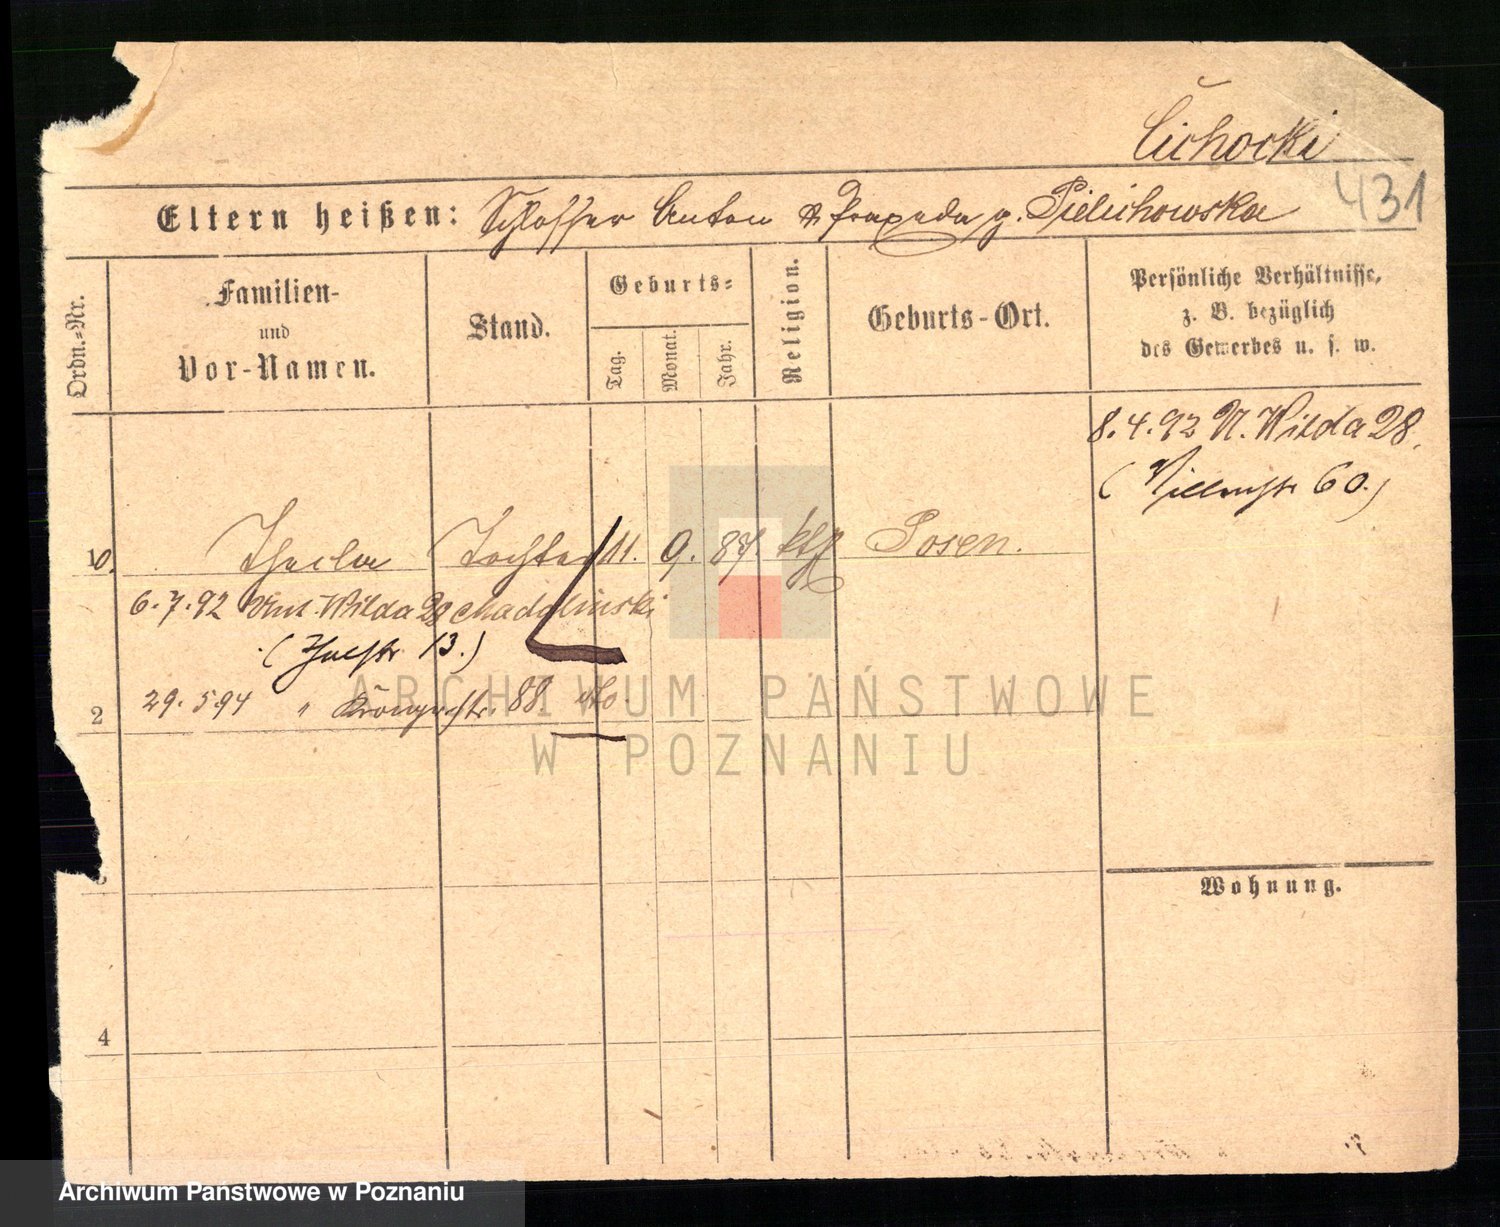 Cichocki
431
Eltern heißen: Schlosser Anton & Praxeda g. Pielichowska
Ordn.-Nr.
Familien-
und
Vor-Namen.
Stand.
Geburts-
Tag.
Monat.
Jahr.
Religion.
Geburts-Ort.
Persönliche Verhältnisse,
z. B. bezüglich
des Gewerbes u. s. w.
8.4.92 U. Wilda 28.
( 60.)
10. Thecla Tochter 11. 9. 87. kth Posen.
6.7.92 Unt. Wilda 28 Madalinski
( 13.)
2 29.5.94 " 88
Wohnung.
4
ARCHIWUM PAŃSTWOWE
W POZNANIU
Archiwum Państwowe w Poznaniu